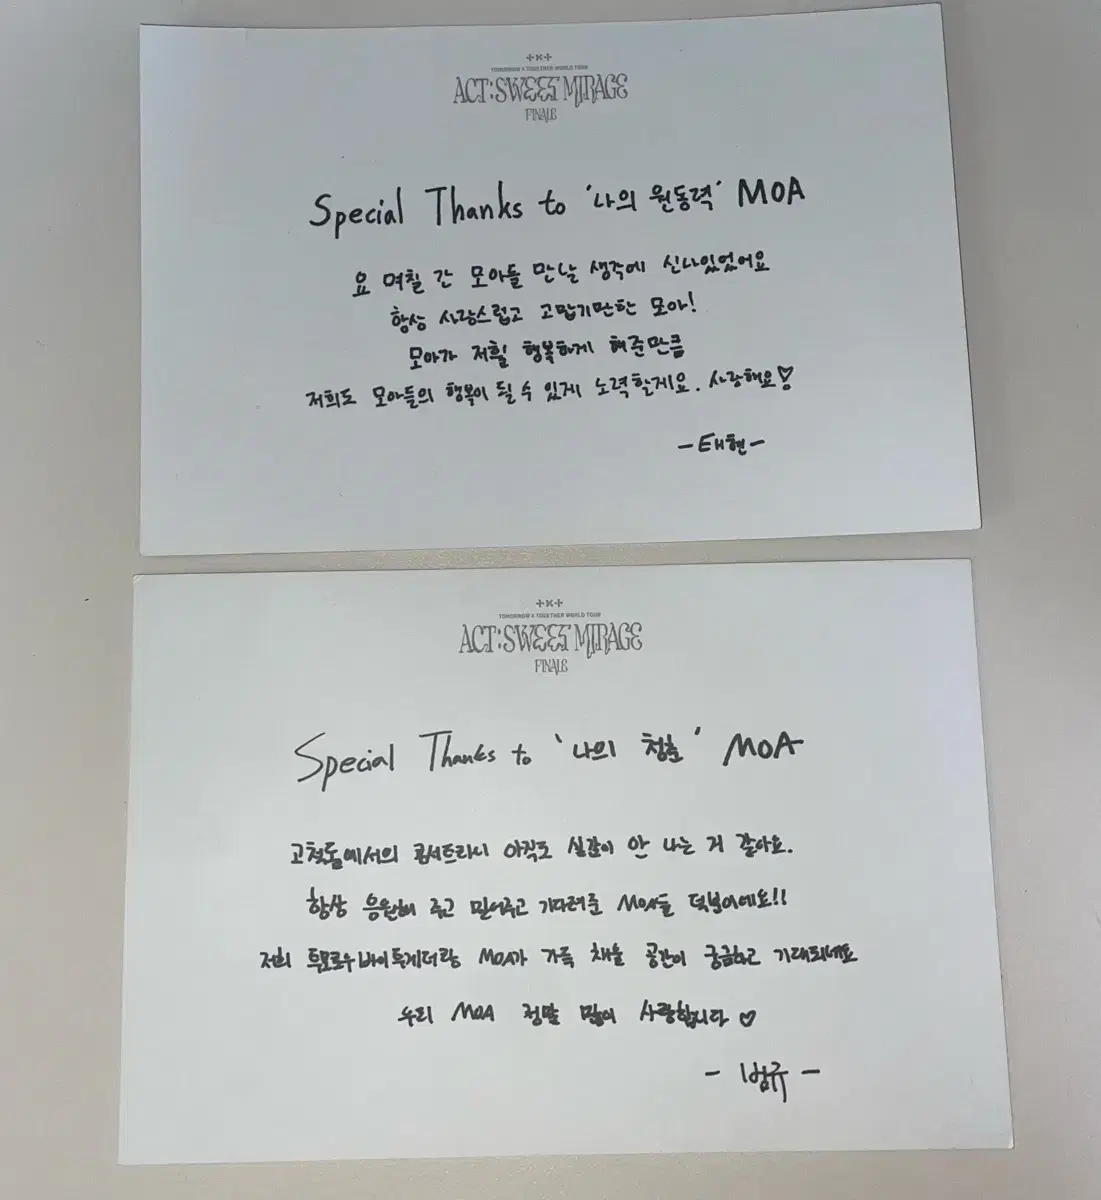 TOMORROW X TOGETHER WORLD TOUR
ACT:SWEET MIRAGE
FINALE
Special Thanks to '나의 원동력' MOA
요 며칠 간 모아들 만날 생각에 신나있었어요
항상 사랑스럽고 고맙기만한 모아!
모아가 저흴 행복하게 해준만큼
저희도 모아들의 행복이 될 수 있게 노력할게요. 사랑해요♡
-태현-
TOMORROW X TOGETHER WORLD TOUR
ACT:SWEET MIRAGE
FINALE
Special Thanks to '나의 청춘' MOA
고척돔에서의 콘서트라니 아직도 실감이 안 나는 거 같아요.
항상 응원해 주고 믿어주고 기다려준 MOA들 덕분이에요!!
저희 투모로우바이투게더랑 MOA가 가득 채울 공간이 궁금하고 기대되네요
우리 MOA 정말 많이 사랑합니다♡
- 범규 -